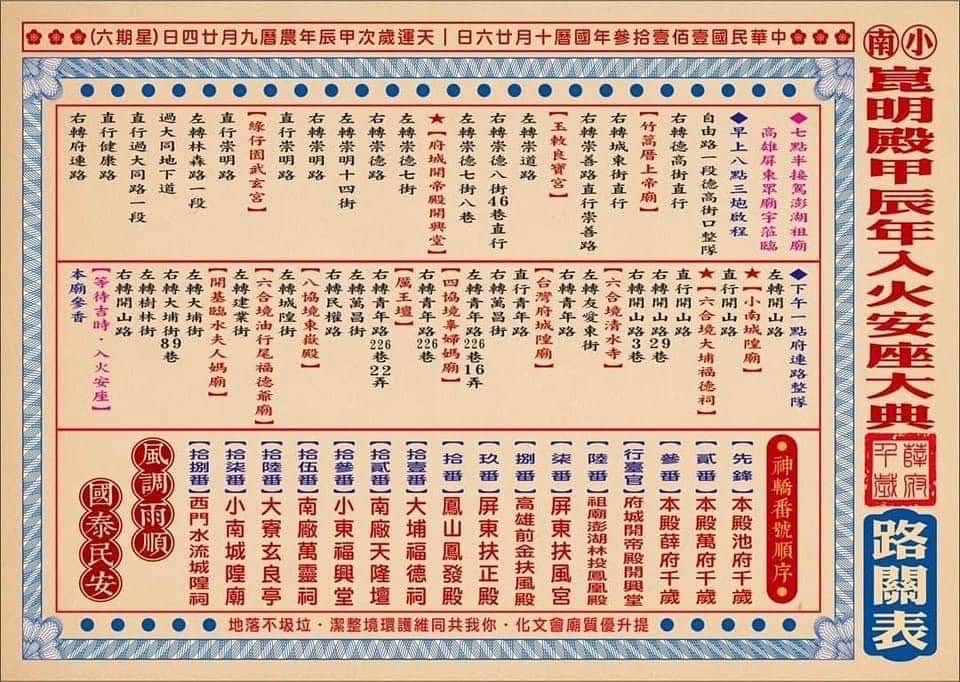 中華民國壹佰壹拾參年國曆十月廿六日｜天運歲次甲辰年農曆九月廿四日(星期六)
小南
崑明殿甲辰年入火安座大典
薛府千歲
路關表
◆七點半接駕澎湖祖廟
高雄屏東眾廟宇蒞臨
◆早上八點三炮啟程
自由路一段德高街口整隊
右轉德高街直行
【竹篙厝上帝廟】
右轉城東街直行
右轉崇善路直行崇善路
【玉敕良寶宮】
左轉崇道路
右轉崇德八街46巷直行
左轉崇德七街八巷
★【府城開帝殿開興堂】
左轉崇德七街
右轉崇德路
左轉崇明十四街
右轉崇明路
直行崇明路
【緣仔園武玄宮】
直行崇明路
左轉林森路一段
直行過大同路一段
過大同地下道
直行健康路
右轉府連路
◆下午一點府連路整隊
左轉開山路
★【小南城隍廟】
直行開山路
★【六合境大埔福德祠】
直行開山路
右轉開山路29巷
右轉開山路3巷
【六合境清水寺】
左轉友愛東街
右轉青年路
【台灣府城隍廟】
直行青年路
右轉萬昌街
左轉青年路226巷16弄
【四協境辜婦媽廟】
右轉青年路226巷
【厲王壇】
右轉青年路226巷22弄
左轉萬昌街
右轉民權路
【八協境東嶽殿】
左轉城隍街
【六合境油行尾福德爺廟】
左轉建業街
【開基臨水夫人媽廟】
左轉大埔街
右轉大埔街89巷
左轉樹林街
右轉開山路
【等待吉時，入火安座】
本廟參香
神轎番號順序
【先鋒】本殿池府千歲
【貳番】本殿萬府千歲
【參番】本殿薛府千歲
【行臺官】府城開帝殿開興堂
【陸番】祖廟澎湖林投鳳凰殿
【柒番】屏東扶風宮
【捌番】高雄前金扶風殿
【玖番】屏東扶正殿
【拾番】鳳山鳳發殿
【拾壹番】大埔福德祠
【拾貳番】南廠天隆壇
【拾參番】小東福興堂
【拾伍番】南廠萬靈祠
【拾陸番】大寮玄良亭
【拾柒番】小南城隍廟
【拾捌番】西門水流城隍祠
風調雨順
國泰民安
提升優質廟會文化・你我共同維護環境整潔・垃圾不落地